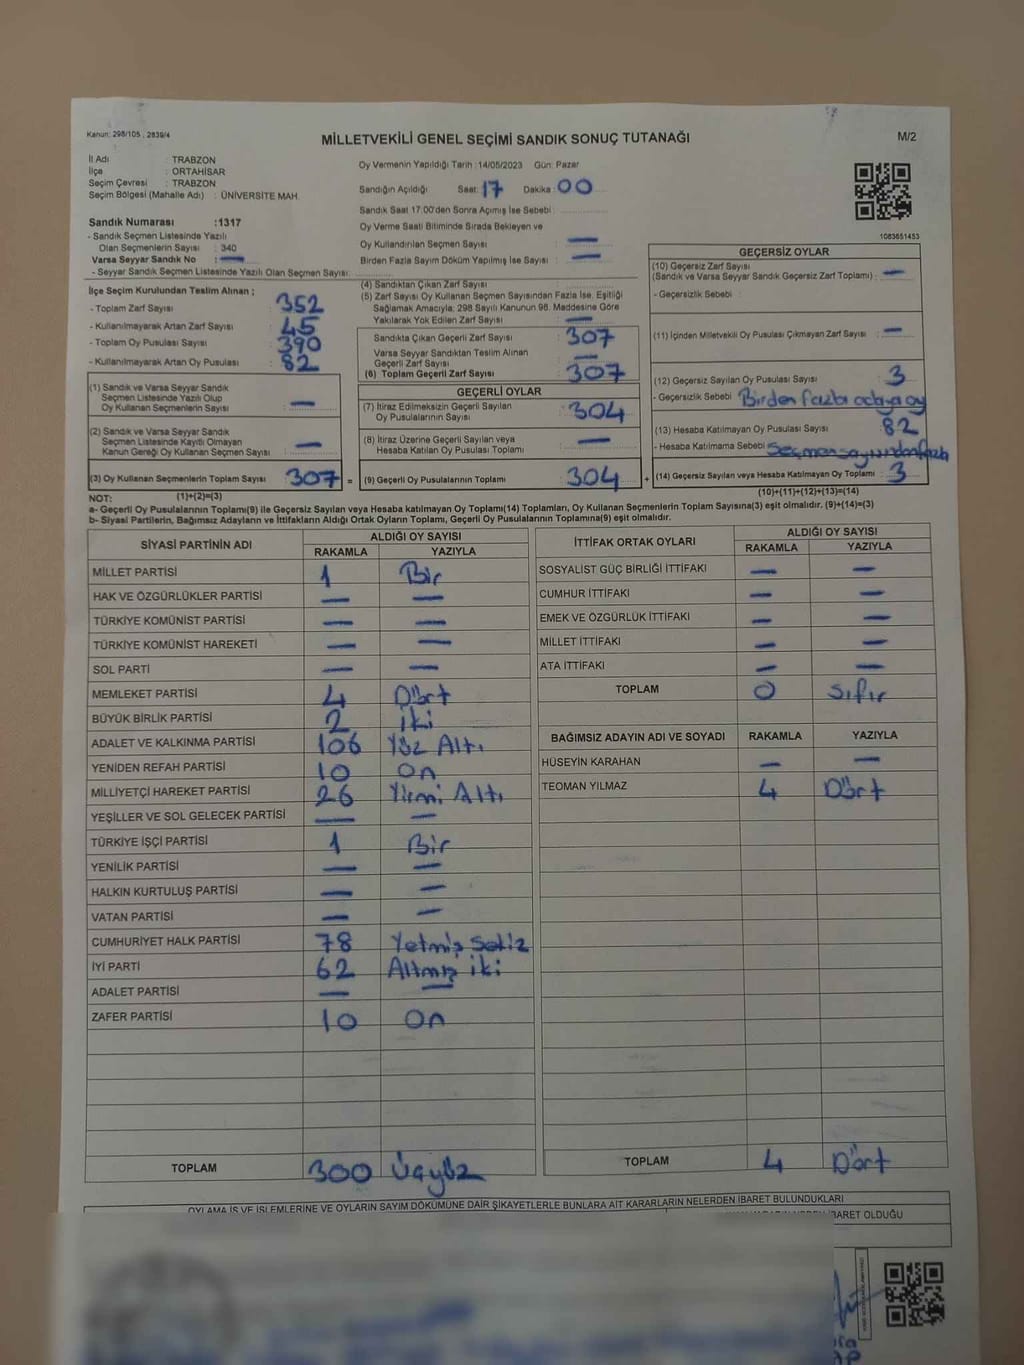 Kanun: 298/105 , 2839/4
MİLLETVEKİLİ GENEL SEÇİMİ SANDIK SONUÇ TUTANAĞI
M/2
İl Adı : TRABZON
İlçe : ORTAHİSAR
Seçim Çevresi : TRABZON
Seçim Bölgesi (Mahalle Adı) : ÜNİVERSİTE MAH.
Sandık Numarası :1317
- Sandık Seçmen Listesinde Yazılı
Olan Seçmenlerin Sayısı : 340
Varsa Seyyar Sandık No : —
- Seyyar Sandık Seçmen Listesinde Yazılı Olan Seçmen Sayısı:
Oy Vermenin Yapıldığı Tarih : 14/05/2023 Gün: Pazar
Sandığın Açıldığı Saat: 17 Dakika : 00
Sandık Saat 17.00'den Sonra Açımış İse Sebebi :
Oy Verme Saati Bitiminde Sırada Bekleyen ve
Oy Kullandırılan Seçmen Sayısı : —
Birden Fazla Sayım Döküm Yapılmış İse Sayısı : —
1083651453
İlçe Seçim Kurulundan Teslim Alınan ;
- Toplam Zarf Sayısı : 352
- Kullanılmayarak Artan Zarf Sayısı : 45
- Toplam Oy Pusulası : 390
- Kullanılmayarak Artan Oy Pusulası : 82
(1) Sandık ve Varsa Seyyar Sandık
Seçmen Listesinde Yazılı Olup
Oy Kullanan Seçmenlerin Sayısı : —
(2) Sandık ve Varsa Seyyar Sandık
Seçmen Listesinde Kayıtlı Olmayan
Kanun Gereği Oy Kullanan Seçmen Sayısı : —
(3) Oy Kullanan Seçmenlerin Toplam Sayısı : 307 =
(1)+(2)=(3)
(4) Sandıktan Çıkan Zarf Sayısı :
(5) Zarf Sayısı Oy Kullanan Seçmen Sayısından Fazla İse, Eşitliği
Sağlamak Amacıyla, 298 Sayılı Kanunun 98. Maddesine Göre
Yakılarak Yok Edilen Zarf Sayısı : —
Sandıkta Çıkan Geçerli Zarf Sayısı : 307
Varsa Seyyar Sandıktan Teslim Alınan
Geçerli Zarf Sayısı : —
(6) Toplam Geçerli Zarf Sayısı : 307
GEÇERLİ OYLAR
(7) İtiraz Edilmeksizin Geçerli Sayılan
Oy Pusulalarının Sayısı : 304
(8) İtiraz Üzerine Geçerli Sayılan veya
Hesaba Katılan Oy Pusulası Toplamı : —
(9) Geçerli Oy Pusulalarının Toplamı : 304 +
GEÇERSİZ OYLAR
(10) Geçersiz Zarf Sayısı
(Sandık ve Varsa Seyyar Sandık Geçersiz Zarf Toplamı) : —
- Geçersizlik Sebebi :
(11) İçinden Milletvekili Oy Pusulası Çıkmayan Zarf Sayısı : —
(12) Geçersiz Sayılan Oy Pusulası Sayısı : 3
- Geçersizlik Sebebi : Birden fazla adaya oy
(13) Hesaba Katılmayan Oy Pusulası Sayısı : 82
- Hesaba Katılmama Sebebi : Seçmen sayısından fazla
(14) Geçersiz Sayılan veya Hesaba Katılmayan Oy Toplamı : 3
(10)+(11)+(12)+(13)=(14)
NOT:
a- Geçerli Oy Pusulalarının Toplamı(9) ile Geçersiz Sayılan veya Hesaba katılmayan Oy Toplamı(14) Toplamları, Oy Kullanan Seçmenlerin Toplam Sayısına(3) eşit olmalıdır. (9)+(14)=(3)
b- Siyasi Partilerin, Bağımsız Adayların ve İttifakların Aldığı Ortak Oyların Toplamı, Geçerli Oy Pusulalarının Toplamına(9) eşit olmalıdır.
SİYASİ PARTİNİN ADI ALDIĞI OY SAYISI
RAKAMLA YAZIYLA
MİLLET PARTİSİ 1 Bir
HAK VE ÖZGÜRLÜKLER PARTİSİ — —
TÜRKİYE KOMÜNİST PARTİSİ — —
TÜRKİYE KOMÜNİST HAREKETİ — —
SOL PARTİ — —
MEMLEKET PARTİSİ 4 Dört
BÜYÜK BİRLİK PARTİSİ 2 iki
ADALET VE KALKINMA PARTİSİ 106 Yüz Altı
YENİDEN REFAH PARTİSİ 10 On
MİLLİYETÇİ HAREKET PARTİSİ 26 Yirmi Altı
YEŞİLLER VE SOL GELECEK PARTİSİ — —
TÜRKİYE İŞÇİ PARTİSİ 1 Bir
YENİLİK PARTİSİ — —
HALKIN KURTULUŞ PARTİSİ — —
VATAN PARTİSİ — —
CUMHURİYET HALK PARTİSİ 78 Yetmiş Sekiz
İYİ PARTİ 62 Altmış iki
ADALET PARTİSİ — —
ZAFER PARTİSİ 10 On
TOPLAM 300 Üçyüz
İTTİFAK ORTAK OYLARI ALDIĞI OY SAYISI
RAKAMLA YAZIYLA
SOSYALİST GÜÇ BİRLİĞİ İTTİFAKI — —
CUMHUR İTTİFAKI — —
EMEK VE ÖZGÜRLÜK İTTİFAKI — —
MİLLET İTTİFAKI — —
ATA İTTİFAKI — —
TOPLAM 0 Sıfır
BAĞIMSIZ ADAYIN ADI VE SOYADI RAKAMLA YAZIYLA
HÜSEYİN KARAHAN — —
TEOMAN YILMAZ 4 Dört
TOPLAM 4 Dört
OYLAMA İŞ VE İŞLEMLERİNE VE OYLARIN SAYIM DÖKÜMÜNE DAİR ŞİKAYETLERLE BUNLARA AİT KARARLARIN NELERDEN İBARET BULUNDUKLARI
İBARET OLDUĞU